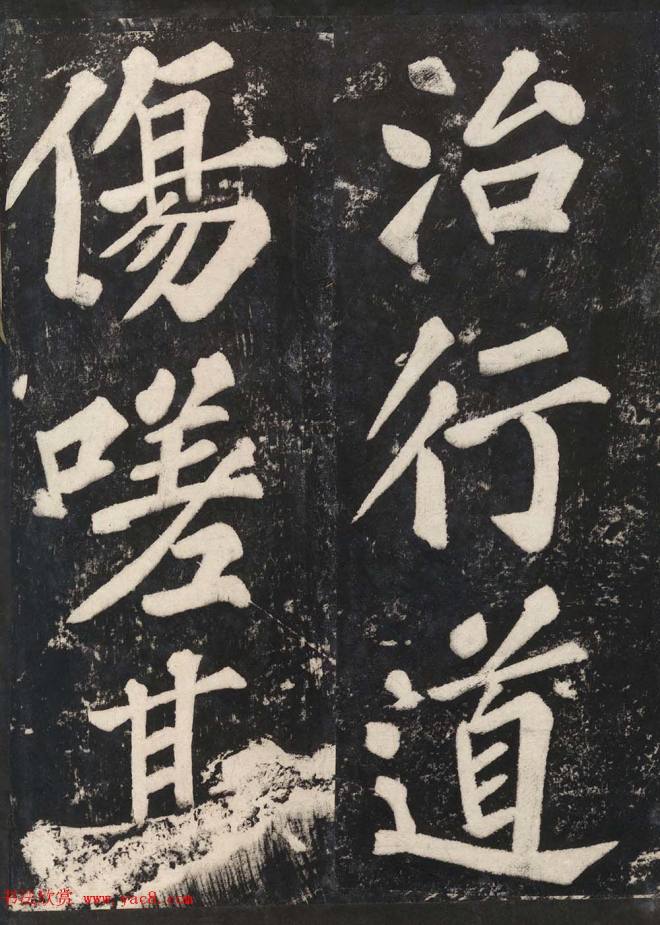 治行道
傷嗟甚
书法欣赏 www.yac8.com